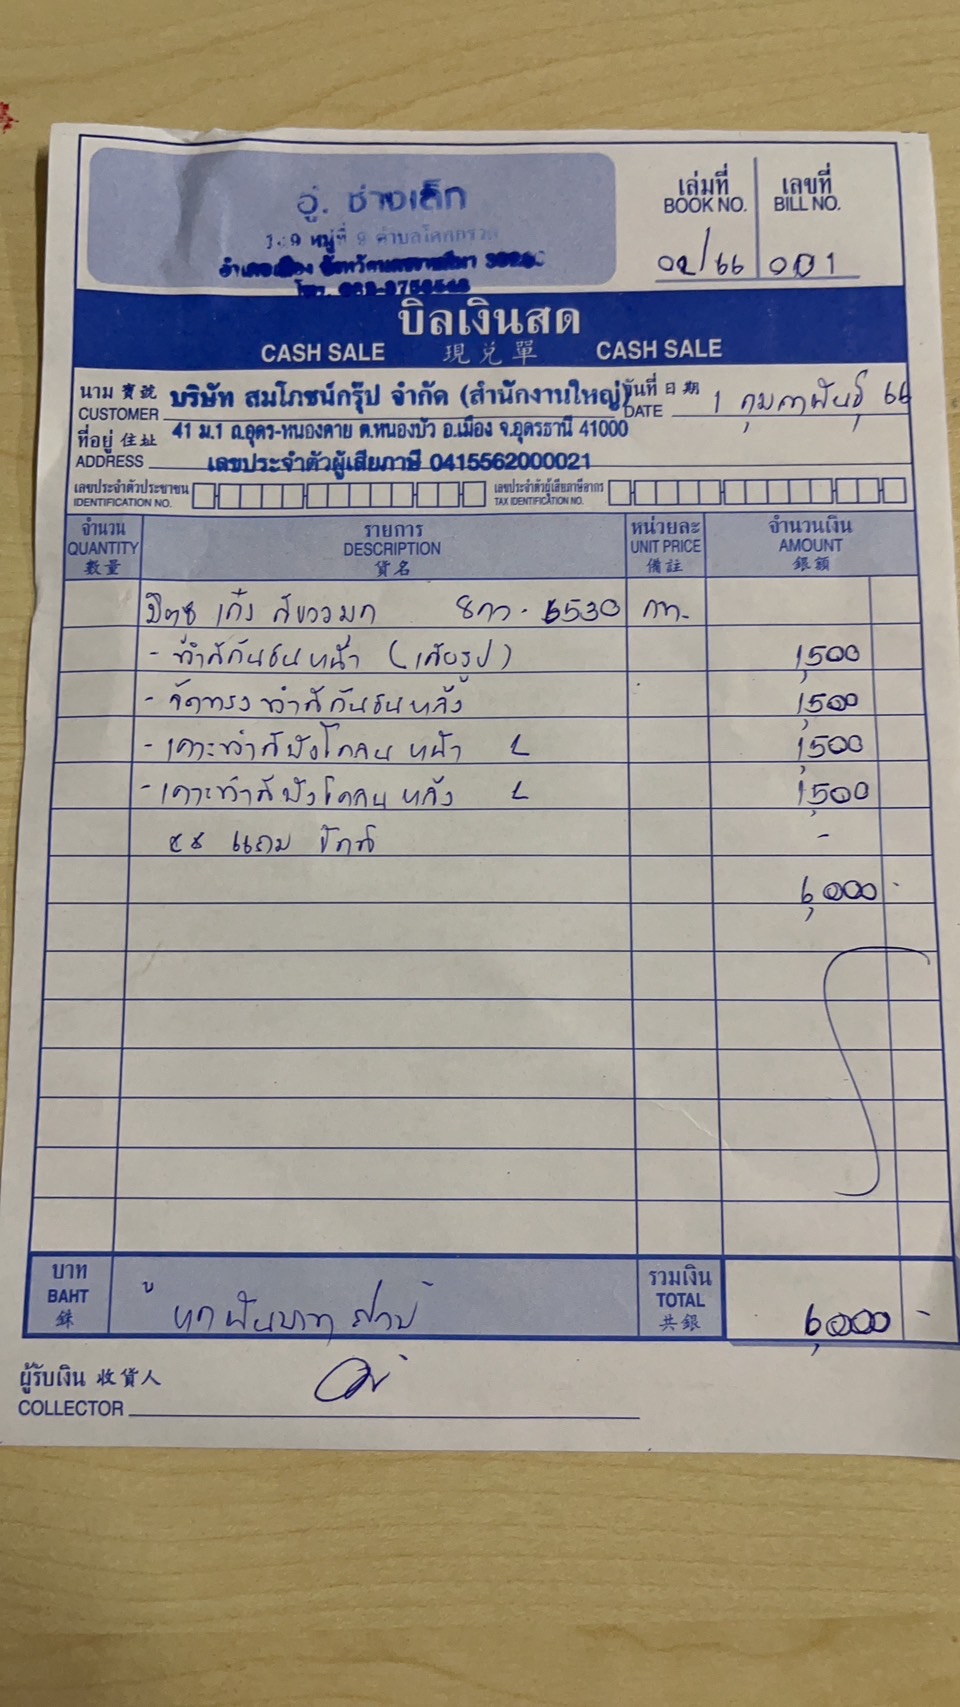 อู่. ช่างเล็ก
หมู่ที่ 9 ตำบลโคกกรวด
อำเภอเมือง จังหวัดนครราชสีมา
โทร.
เล่มที่ เลขที่
BOOK NO. BILL NO.
02/66 001
บิลเงินสด
CASH SALE 現兌單 CASH SALE
นาม 寳號 บริษัท สมโภชน์กรุ๊ป จำกัด (สำนักงานใหญ่) วันที่ 日期
CUSTOMER DATE 1 กุมภาพันธ์ 66
ที่อยู่ 住址 41 ม.1 ถ.อุดร-หนองคาย ต.หนองบัว อ.เมือง จ.อุดรธานี 41000
ADDRESS เลขประจำตัวผู้เสียภาษี 0415562000021
เลขประจำตัวประชาชน เลขประจำตัวผู้เสียภาษีอากร
IDENTIFICATION NO. TAX IDENTIFICATION NO.
จำนวน รายการ หน่วยละ จำนวนเงิน
QUANTITY DESCRIPTION UNIT PRICE AMOUNT
數量 貨名 備註 銀額
มิตซู เก๋ง สีขาวมุก 6530 กท.
- ทำสีกันชนหน้า (เสียรูป) 1,500
- จัดทรงทำสีกันชนหลัง 1,500
- เคาะทำสีบังโคลนหน้า L 1,500
- เคาะทำสีบังโคลนหลัง L 1,500
แถม -
6,000 -
บาท รวมเงิน
BAHT หกพันบาทถ้วน TOTAL 6,000 -
銖 共銀
ผู้รับเงิน 收貨人
COLLECTOR